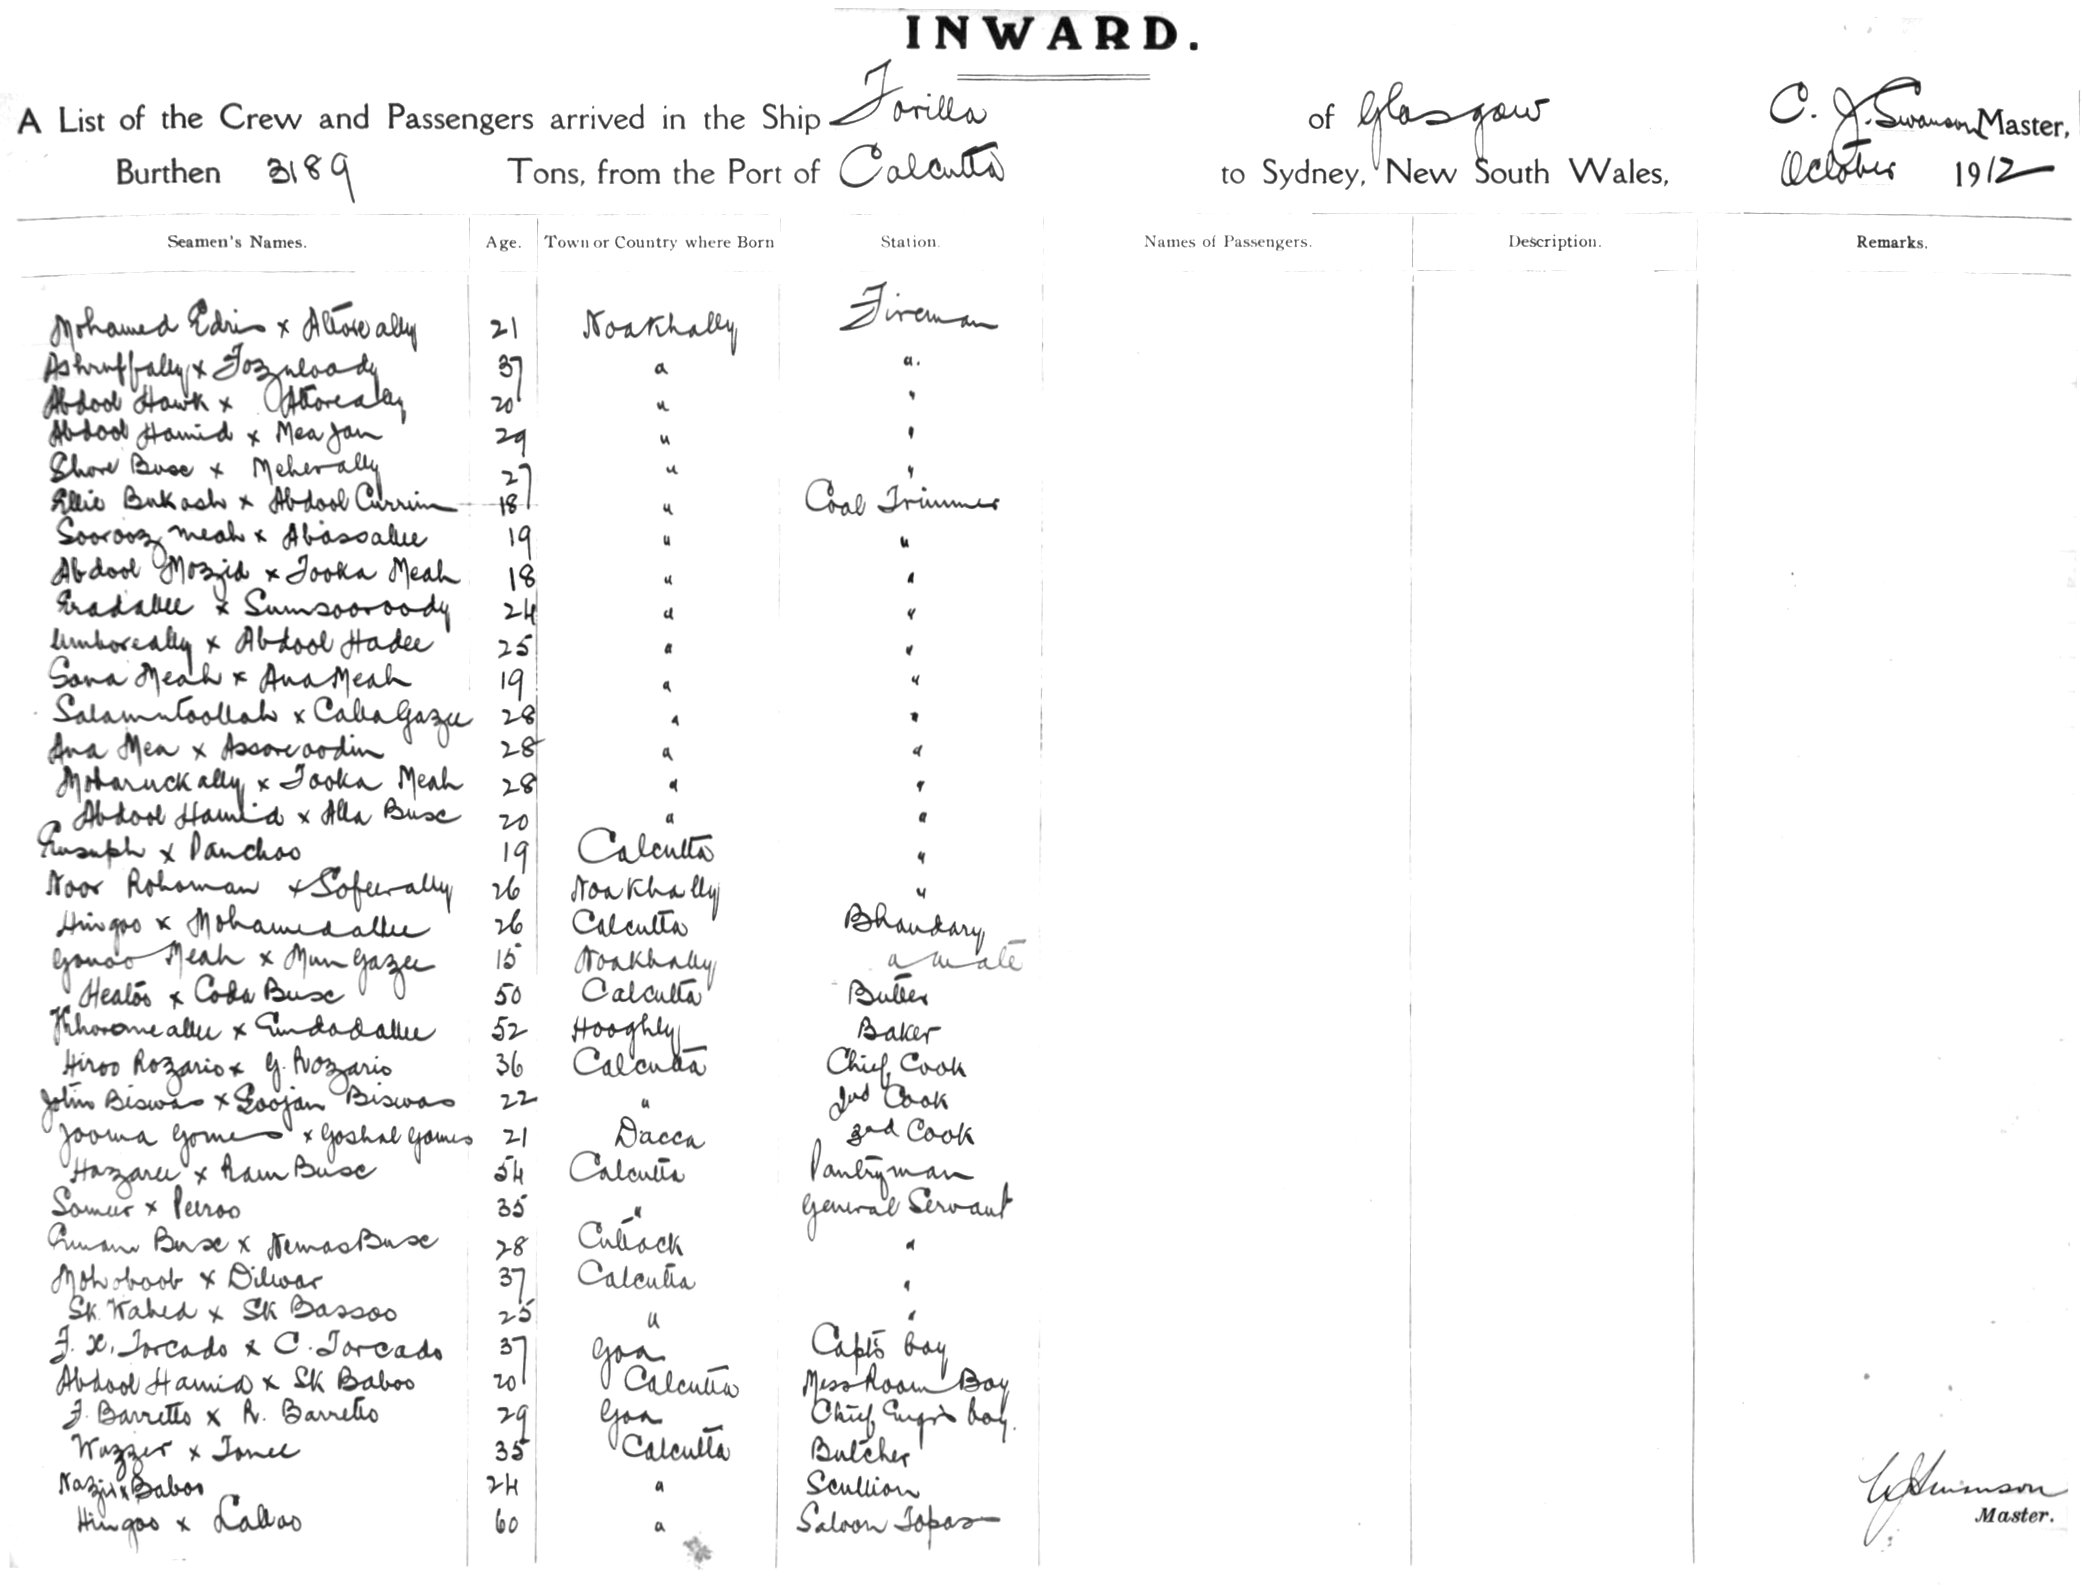 INWARD.
A List of the Crew and Passengers arrived in the Ship Torilla of Glasgow C. J. Swanson Master,
Burthen 3189 Tons, from the Port of Calcutta to Sydney, New South Wales, October 1912
Seamen's Names. Age. Town or Country where Born Station. Names of Passengers. Description. Remarks.
Mohamed Edris x Altore ally 21 Noakhally Fireman
Ashruffally x Fozuloody 37 " "
Abdool Hawk x Attoreally 20 " "
Abdool Hamid x Mea Jan 29 " "
Shore Buse x Meherally 27 " "
Ellie Bukash x Abdool Currim 18 " Coal Trimmer
Soorooz Meah x Abassallee 19 " "
Abdool Mozzid x Tooka Meah 18 " "
Eradallee x Sumsooroody 24 " "
Umboreally x Abdool Hadee 25 " "
Sona Meah x Ana Meah 19 " "
Salamutoollah x Calla Gazee 28 " "
Ana Mea x Assoreoodin 28 " "
Mobaruckally x Tooka Meah 28 " "
Abdool Hamid x Alla Buse 20 " "
Eusuph x Panchoo 19 Calcutta "
Noor Rohoman x Sofeerally 26 Noakhally "
Hingoo x Mohamedallee 26 Calcutta Bhandary
Gonoo Meah x Mun Gazee 15 Noakhally " mate
Healoo x Coda Buse 50 Calcutta Butler
Khoromeallee x Emdadallee 52 Hooghly Baker
Hiroo Rozario x G. Rozario 36 Calcutta Chief Cook
Jotin Biswas x Goojan Biswas 22 " 2nd Cook
Jooma Gomes x Goshal Gomes 21 Dacca 3rd Cook
Hazaree x Ram Buse 54 Calcutta Pantryman
Someer x Peeroo 35 " General Servant
Emam Buse x Nemoo Buse 28 Cuttack "
Mohoboob x Dilwar 37 Calcutta "
Sk. Wahed x Sk Bassoo 25 " "
F. X. Torcado x C. Torcado 37 Goa Capt's boy
Abdool Hamid x Sk Baboo 20 Calcutta Mess Room Boy
F. Barretto x R. Barretto 29 Goa Chief Engr's boy.
Wuzzer x Tonee 35 Calcutta Butcher
Nazir x Baboo 24 " Scullion
Hingoo x Lalloo 60 " Saloon Topas
C J Swanson
Master.